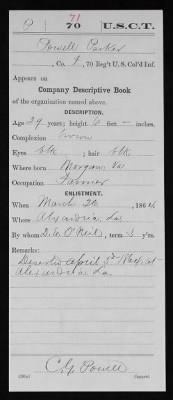 71
P | 70 | U.S.C.T.
Powell Parker
, Co. I, 70 Reg't U.S. Col'd Inf.
Appears on
Company Descriptive Book
of the organization named above.
DESCRIPTION.
Age 24 years; height 6 feet – inches.
Complexion Brown
Eyes Blk; hair Blk
Where born Morgan, Va
Occupation Farmer
ENLISTMENT.
When March 20, 1864
Where Alexandria, La
By whom D. C. O'Neil; term 3 y'rs.
Remarks:
Deserted April 3d at
Alexandria La
C. G. Powell
Copyist.